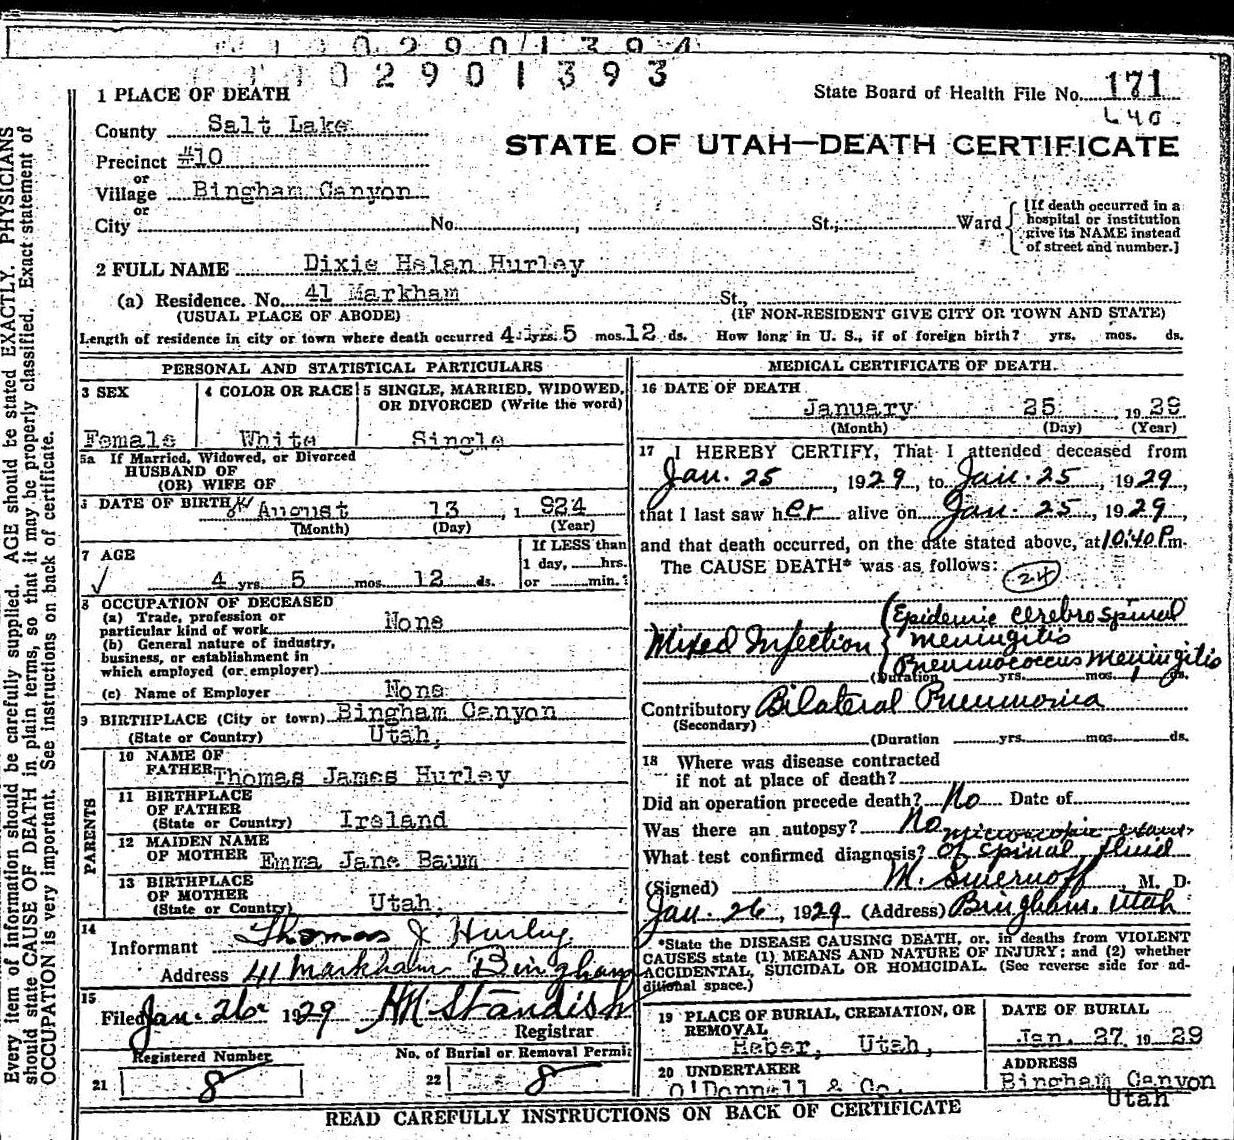 0 2 9 0 1 3 9 4
0 2 9 0 1 3 9 3
1 PLACE OF DEATH
State Board of Health File No. 171
County Salt Lake
L40
STATE OF UTAH—DEATH CERTIFICATE
Precinct #10
or
Village Bingham Canyon
or
City No. , St.; Ward
[If death occurred in a
hospital or institution
give its NAME instead
of street and number.]
2 FULL NAME Dixie Helan Hurley
(a) Residence. No. 41 Markham St.,
(USUAL PLACE OF ABODE) (IF NON-RESIDENT GIVE CITY OR TOWN AND STATE)
Length of residence in city or town where death occurred 4 yrs. 5 mos. 12 ds. How long in U. S., if of foreign birth? yrs. mos. ds.
PERSONAL AND STATISTICAL PARTICULARS
3 SEX
Female
4 COLOR OR RACE
White
5 SINGLE, MARRIED, WIDOWED,
OR DIVORCED (Write the word)
Single
5a If Married, Widowed, or Divorced
HUSBAND OF
(OR) WIFE OF
6 DATE OF BIRTH August 13 , 1 924
(Month) (Day) (Year)
7 AGE
4 yrs 5 mos. 12 ds.
If LESS than
1 day, hrs.
or min.
8 OCCUPATION OF DECEASED
(a) Trade, profession or
particular kind of work None
(b) General nature of industry,
business, or establishment in
which employed (or employer)
(c) Name of Employer None
9 BIRTHPLACE (City or town) Bingham Canyon
(State or Country) Utah,
PARENTS
10 NAME OF
FATHER Thomas James Hurley
11 BIRTHPLACE
OF FATHER
(State or Country) Ireland
12 MAIDEN NAME
OF MOTHER Emma Jane Baum
13 BIRTHPLACE
OF MOTHER
(State or Country) Utah,
14
Informant Thomas J Hurley
Address 41 Markham Bingham
15
Filed Jan. 26 1929 HN Standish
Registrar
Registered Number
21 8
No. of Burial or Removal Permit
22 8
MEDICAL CERTIFICATE OF DEATH.
16 DATE OF DEATH
January 25 1929
(Month) (Day) (Year)
17 I HEREBY CERTIFY, That I attended deceased from
Jan. 25, 1929, to Jan. 25, 1929,
that I last saw her alive on Jan. 25, 1929,
and that death occurred, on the date stated above, at 10:40 P.m.
The CAUSE DEATH* was as follows:
24
Epidemic cerebro spinal
Mixed Infection { meningitis
Pneumococcus meningitis
(Duration yrs. mos. 1 ds.
Contributory Bilateral Pneumonia
(Secondary)
(Duration yrs. mos. ds.
18 Where was disease contracted
if not at place of death?
Did an operation precede death? No Date of
Was there an autopsy? No
microscopic exam.
What test confirmed diagnosis? of spinal fluid
(Signed) M. Smernoff M. D.
Jan. 26, 1929 (Address) Bingham, Utah
*State the DISEASE CAUSING DEATH, or, in deaths from VIOLENT
CAUSES state (1) MEANS AND NATURE OF INJURY; and (2) whether
ACCIDENTAL, SUICIDAL OR HOMICIDAL. (See reverse side for ad-
ditional space.)
19 PLACE OF BURIAL, CREMATION, OR
REMOVAL
Heber, Utah,
DATE OF BURIAL
Jan. 27 1929
20 UNDERTAKER
O'Donnell & Co.
ADDRESS
Bingham Canyon
Utah
READ CAREFULLY INSTRUCTIONS ON BACK OF CERTIFICATE
Every item of information should be carefully supplied. AGE should be stated EXACTLY. PHYSICIANS
should state CAUSE OF DEATH in plain terms, so that it may be properly classified. Exact statement of
OCCUPATION is very important. See instructions on back of certificate.